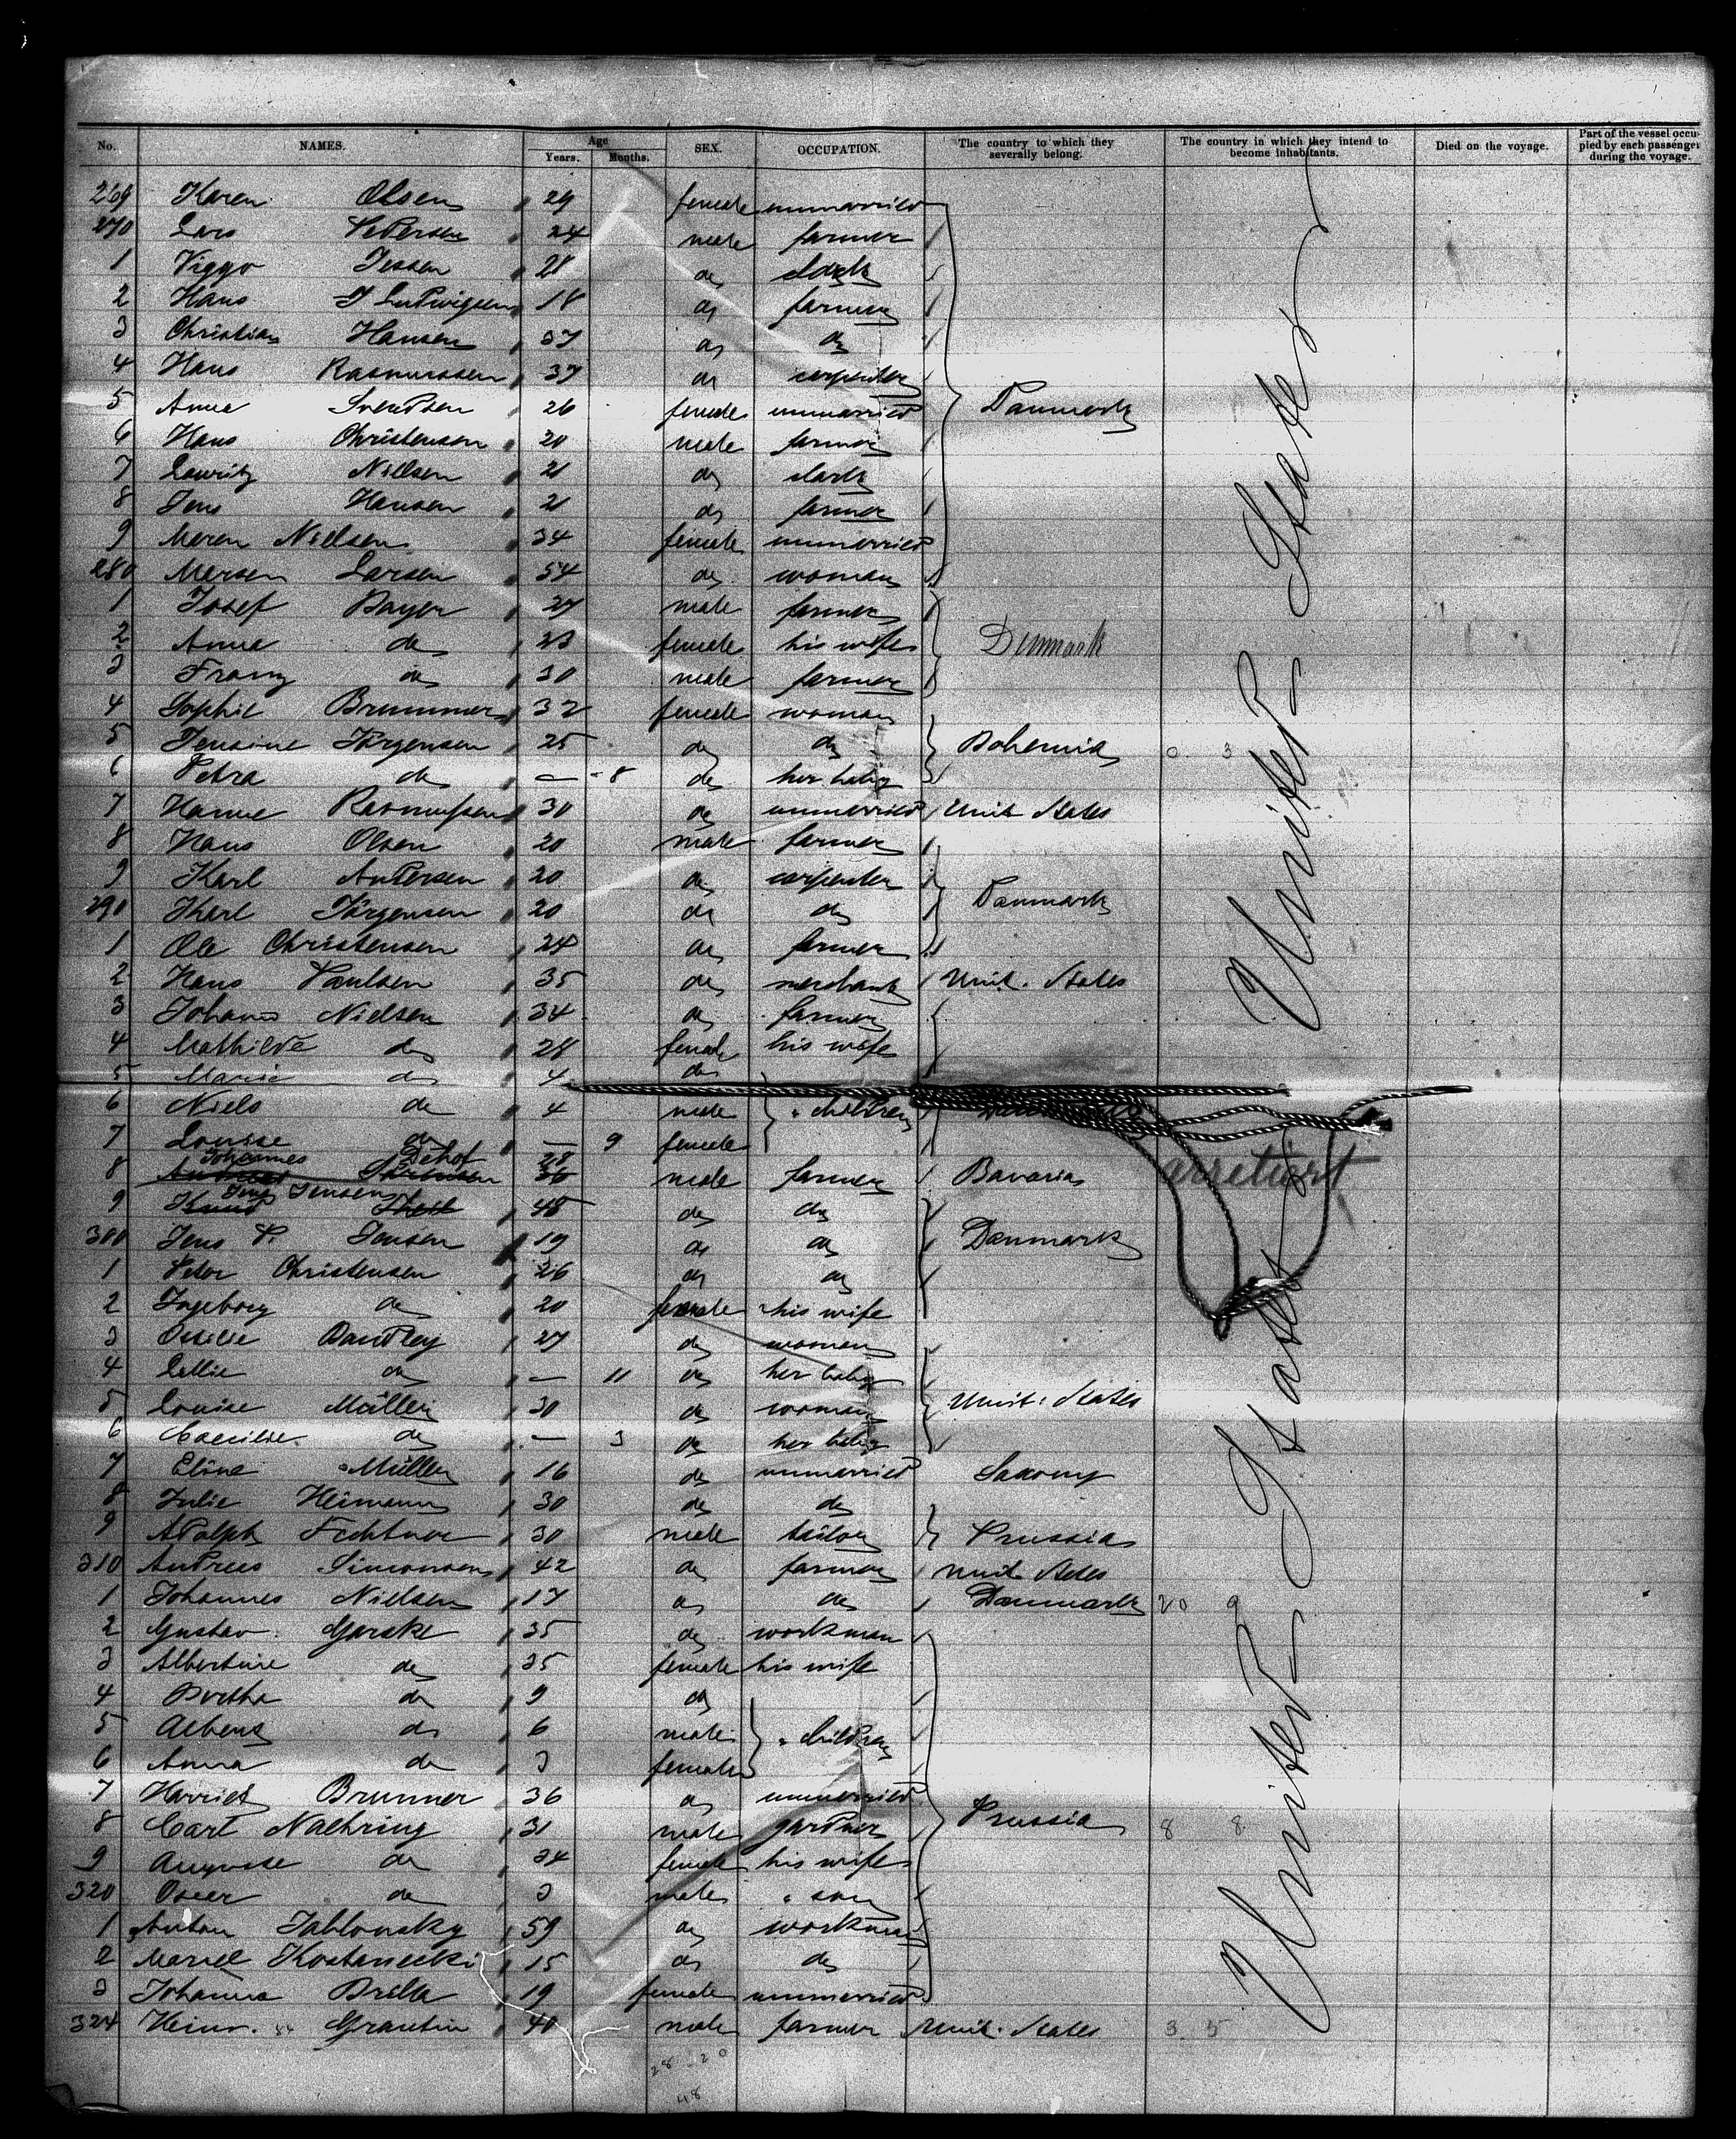 No. NAMES. Age Years. Months. SEX. OCCUPATION. The country to which they severally belong. The country in which they intend to become inhabitants. Died on the voyage. Part of the vessel occupied by each passenger during the voyage.
269 Karen Olsen 29 female unmarried
270 Lars Pedersen 24 male farmer
1 Viggo Jessen 28 do
2 Hans J Ludwigsen 18 do farmer
3 Christian Hansen 37 do do
4 Hans Rasmussen 37 do carpenter
5 Anna Svendsen 26 female unmarried Danmark
6 Hans Christensen 20 male farmer
7 Lauritz Nielsen 21 do clark
8 Jens Hansen 21 do farmer
9 Maren Nielsen 34 female unmarried
280 Larsen 54 do woman
1 Josef Bayer 27 male farmer
2 Anna do 23 female his wife Denmark
3 Franz do 30 male farmer
4 Sophie Brummer 32 female woman
5 Jensine Jörgensen 25 do do Bohemia 0 3
6 Petra do — 8 do her baby
7 Hanne Rasmussen 30 do unmarried Unit States
8 Hans Olsen 20 male farmer
9 Karl Andersen 20 do carpenter Danmark
290 Karl Jörgensen 20 do do
1 Ole Christensen 28 do farmer
2 Hans Paulsen 35 do merchant Unit. States
3 Johann Nielsen 34 do farmer
4 Mathilde do 28 female his wife
5 Marie do 4 do
6 Niels do 4 male " children
7 Louise do — 9 female
8 Johannes Dehof 28 male farmer Bavaria arretiert
9 Jens Jensen 48 do do
300 Jens P. Jensen 19 do do Danmark
1 Peter Christensen 26 do do
2 Ingeborg do 20 female his wife
3 Dandley 27 do woman
4 Lillie do — 11 do her baby
5 Louise Müller 30 do woman Unit: States
6 Caecilie do — 3 do her baby
7 Eline Müller 16 do unmarried Saxony
8 Julie Heimann 30 do do
9 Adolph Fechtner 30 male tailor Prussia
310 Andreas Simonsen 42 do farmer Unit States
1 Johannes Nielsen 17 do do Danmark 20 9
2 Gustav Garske 35 do workman
3 Albertine do 35 female his wife
4 Bertha do 9 do
5 do 6 male " children
6 Anna do 3 female
7 Harriet Brunner 36 do unmarried
8 Carl Naehring 31 male gardner Prussia 8 8
9 Auguste do 34 female his wife
320 Oscar do 3 male " son
1 Anton Jablonsky 59 do workman
2 Kostanecki 15 do do
3 Johanna Brilla 19 female unmarried
324 Heinr. Grautin 40 male farmer Unit. States 3 5
28 20
48
United States
United States